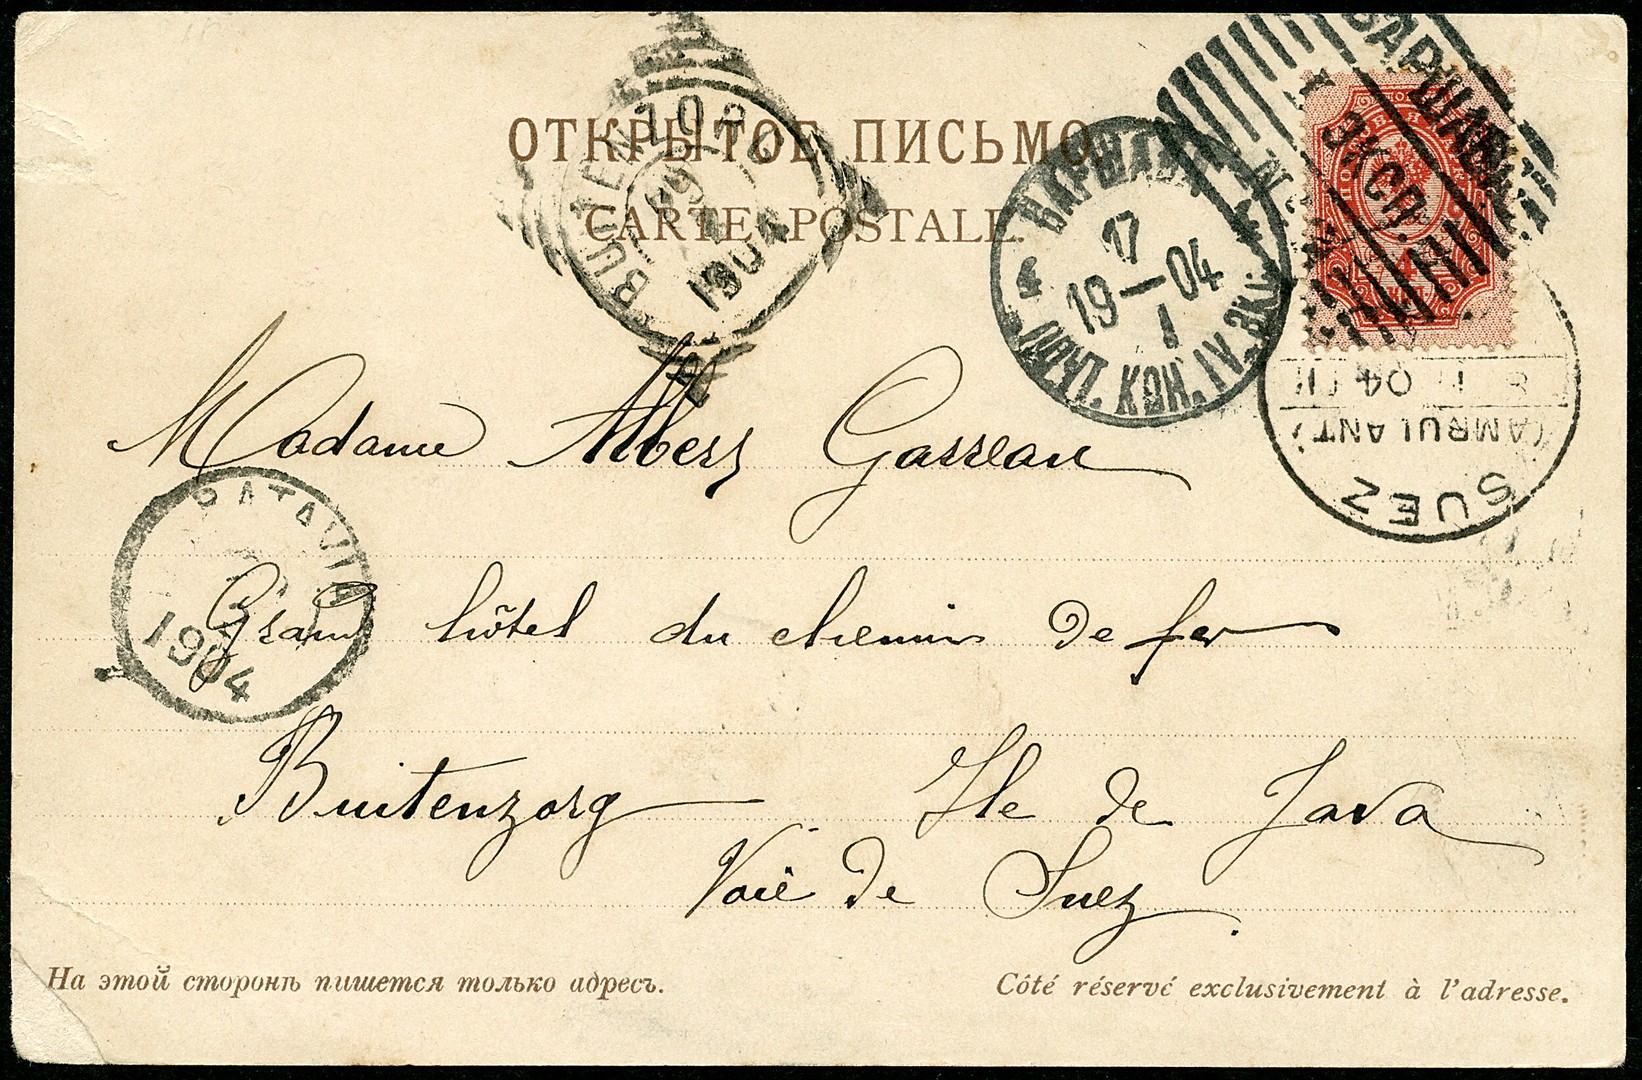 ОТКРЫТОЕ ПИСЬМО.
CARTE POSTALE.
ВАРШАВА
17
19—04
I
ВАРШАВА
ЭКСП.
1904
SUEZ
(AMBULANT)
04
BATAVIA
1904
Madame Albert Gasseau
Grand hôtel du chemin de fer
Buitenzorg Ile de Java
Voie de Suez.
На этой сторонѣ пишется только адресъ.
Côté réservé exclusivement à l'adresse.